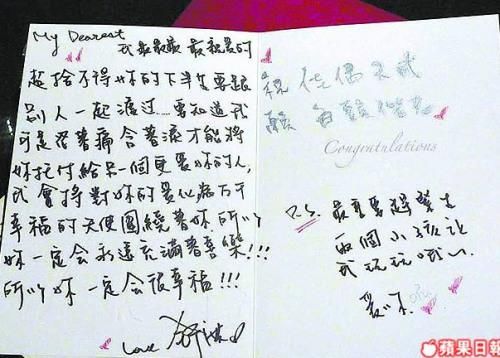 My Dearest
我最最最最親愛的
超捨不得妳的下半生要跟
別人一起渡過……要知道我
可是忍著痛含著淚才能將
妳托付給另一個更愛妳的人,
我會將對妳的愛化成百万千
幸福的天使圍繞著妳 所以
妳一定会永遠充滿著喜樂!!!
所以妳一定会很幸福!!!
Love
祝 佳偶天成
願
Congratulations
P.S. 最重要趕緊生
兩個小孩讓
我玩玩哦~
愛妳
蘋果日報